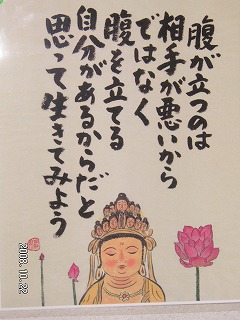 腹が立つのは
相手が悪いから
ではなく
腹を立てる
自分があるからだと
思って生きてみよう
2008.10.22